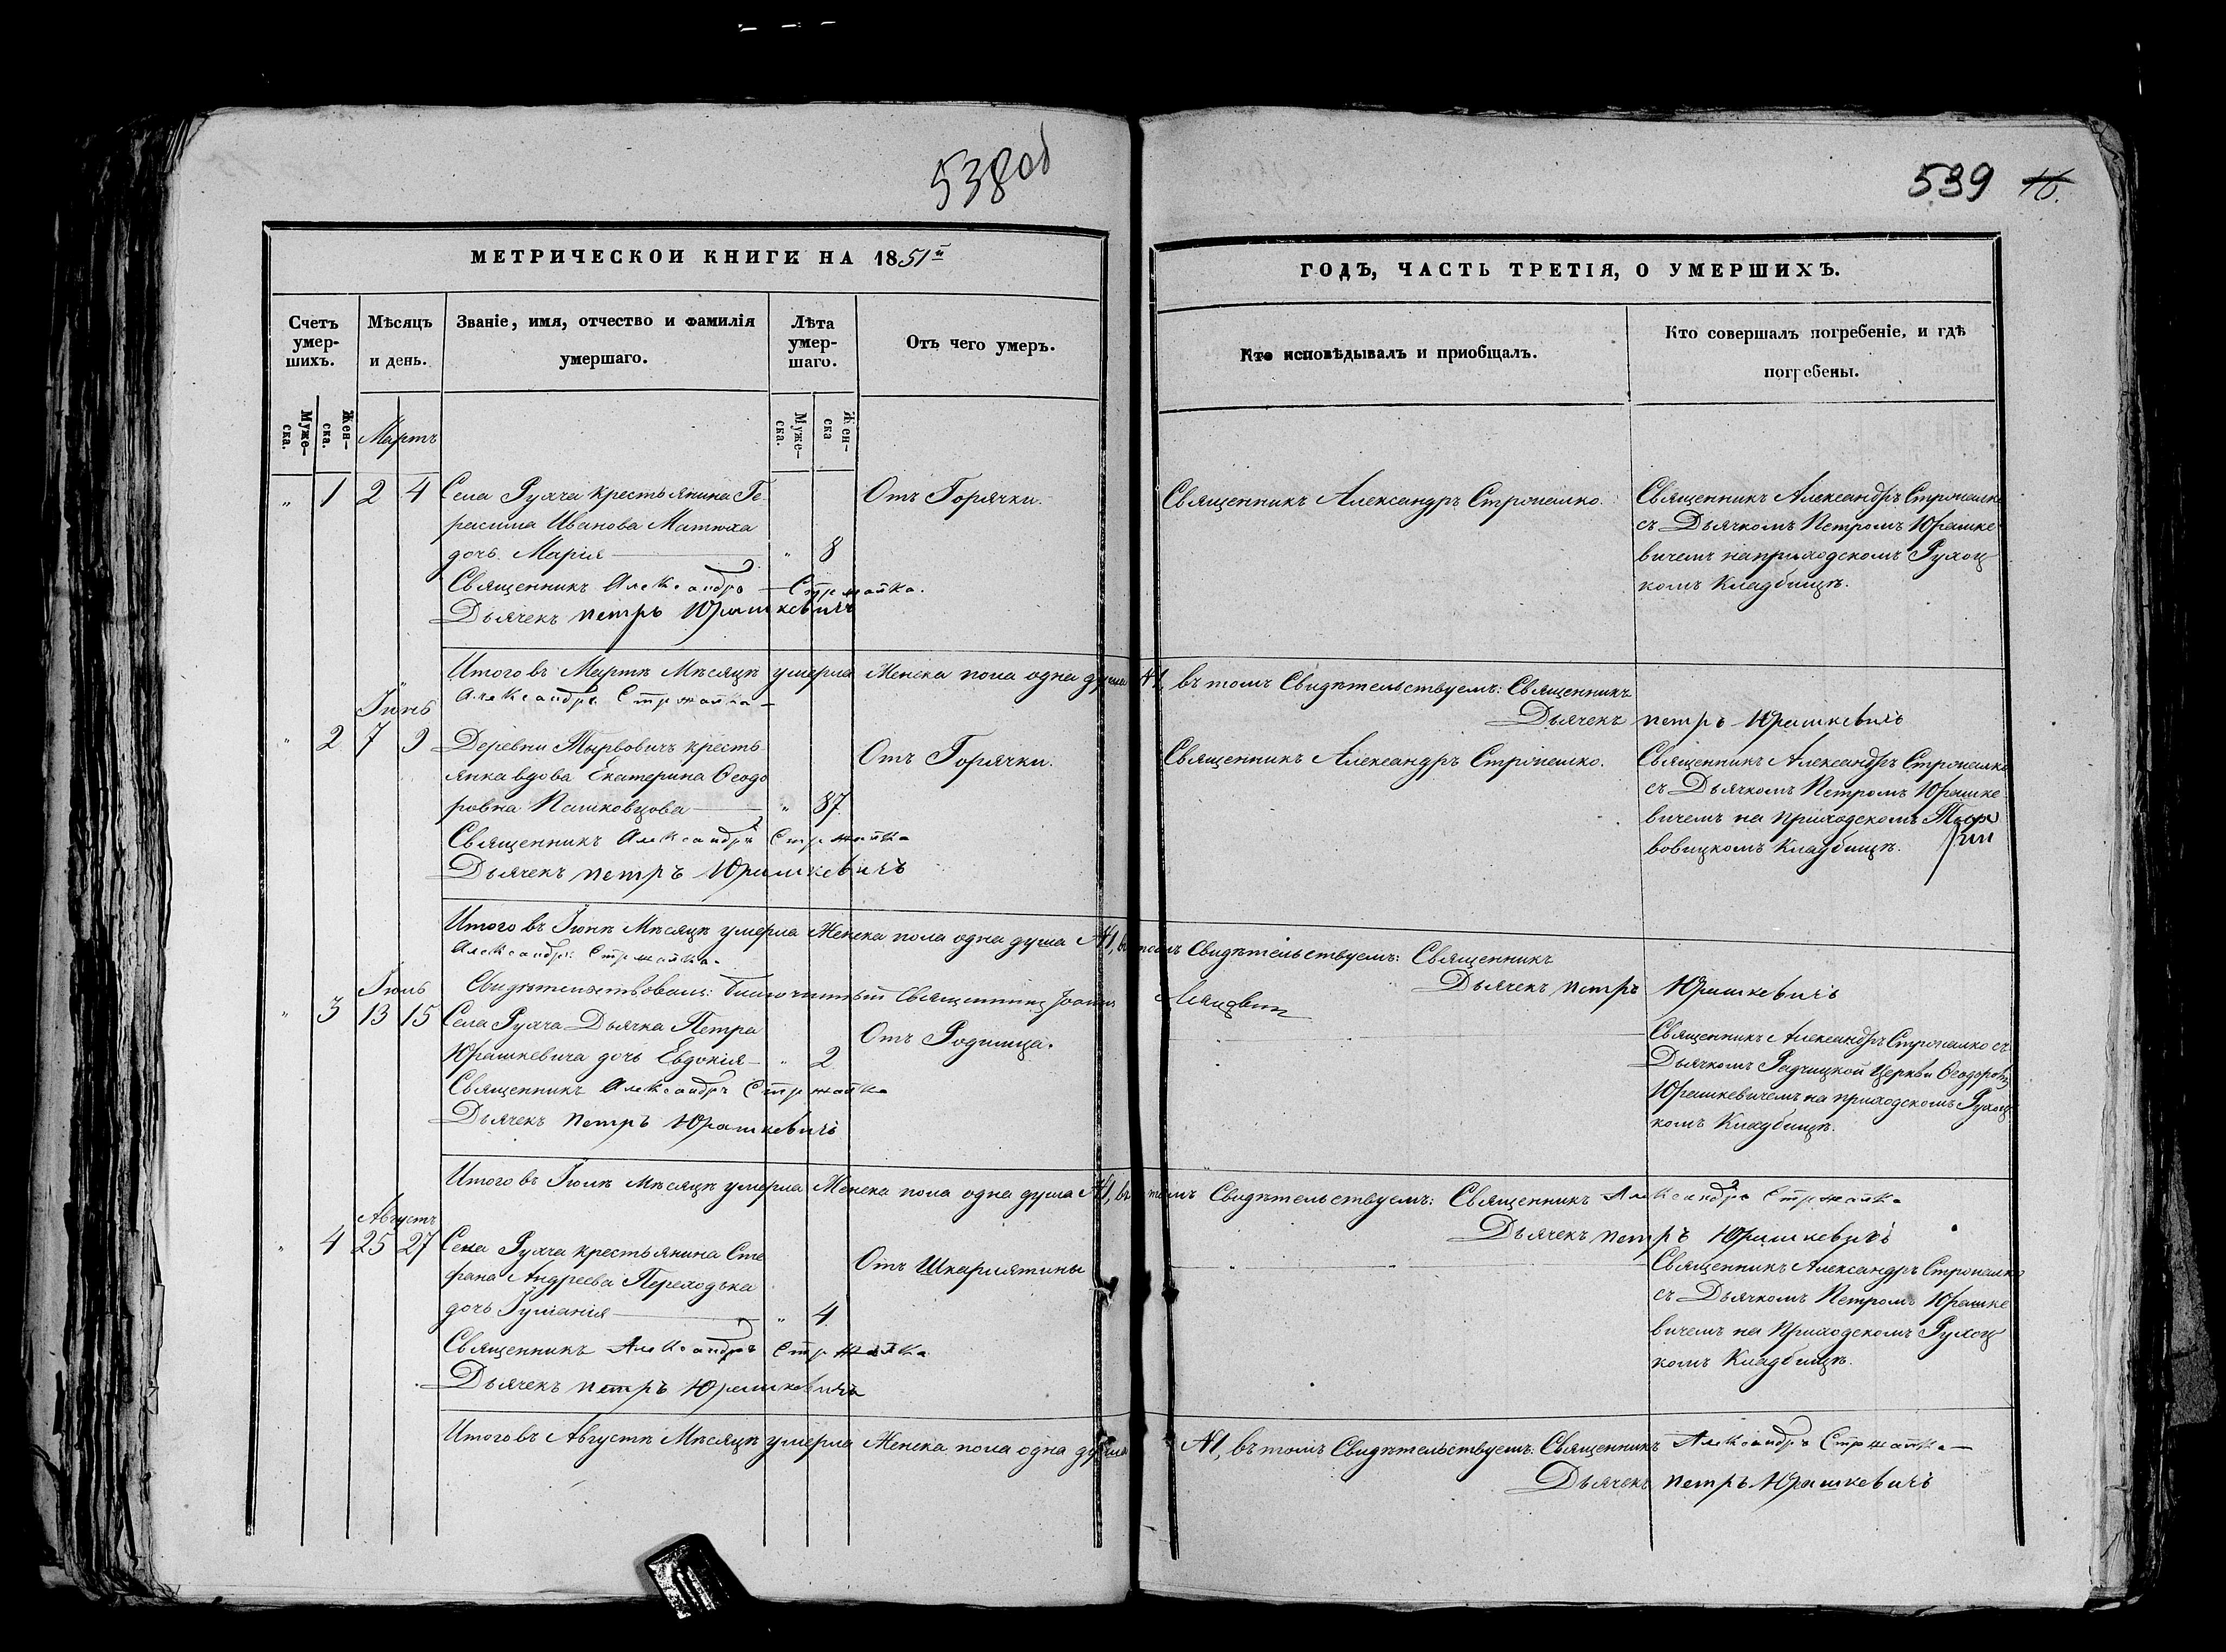 538 об
539 16.
МЕТРИЧЕСКОИ КНИГИ НА 1851й
ГОДЪ, ЧАСТЬ ТРЕТІЯ, О УМЕРШИХЪ.
Счетъ умер-шихъ.
Мѣсяцъ и день.
Званіе, имя, отчество и фамилія умершаго.
Лѣта умер-шаго.
Отъ чего умеръ.
Кто исповѣдывалъ и приобщалъ.
Кто совершалъ погребеніе, и гдѣ погребены.
Муже-ска.
Жен-ска.
Муже-ска.
Жен-ска
Мартъ
" 1 2 4 Села Рухча крестьянина Ге
расима Иванова Матюха
дочь Марія " 8
Отъ Горячки.
Священникъ Александръ
Священникъ Александръ
съ Дьячкомъ Петромъ Юрашке
вичемъ на приходскомъ Рухоц
комъ Кладбищѣ.
Священникъ Александръ
Дьячекъ Петръ Юрашкевичъ
Итого въ Мартѣ Мѣсяцѣ умерла Женска пола одна душа №1, въ томъ Свидѣтельствуемъ: Священникъ
Александръ
Дьячекъ Петръ Юрашкевичъ
Іюнь
" 2 7 9 Деревни Тырвовичъ кресть
янка вдова Екатерина Ѳеодо
ровна Пашковцова " 87
Отъ Горячки.
Священникъ Александръ
Священникъ Александръ
съ Дьячкомъ Петромъ Юрашке
вичемъ на приходскомъ
вовицкомъ Кладбищѣ.
Священникъ Александръ
Дьячекъ Петръ Юрашкевичъ
Итого въ Іюнѣ Мѣсяцѣ умерла Женска пола одна душа №1, въ томъ Свидѣтельствуемъ: Священникъ
Александръ
Дьячекъ Петръ Юрашкевичъ
Свидѣтельствовалъ: Благочинный Священникъ Іоаннъ
Іюль
" 3 13 15 Села Рухча Дьячка Петра
Юрашкевича дочь Евдокія " 2
Отъ Родимца.
Священникъ Александръ съ
Дьячкомъ Радчицкой Церкви Ѳеодоромъ
Юрашкевичемъ на приходскомъ Рухоц
комъ Кладбищѣ.
Священникъ Александръ
Дьячекъ Петръ Юрашкевичъ
Итого въ Іюлѣ Мѣсяцѣ умерла Женска пола одна душа №1, въ томъ Свидѣтельствуемъ: Священникъ Александръ
Дьячекъ Петръ Юрашкевичъ
Августъ
" 4 25 27 Села Рухча крестьянина Сте
фана Андреева Переходька
дочь Іуліанія " 4
Отъ Шкарлятины
Священникъ Александръ
съ Дьячкомъ Петромъ Юрашке
вичемъ на Приходскомъ Рухоц
комъ Кладбищѣ.
Священникъ Александръ
Дьячекъ Петръ Юрашкевичъ
Итого въ Августѣ Мѣсяцѣ умерла Женска пола одна душа №1, въ томъ Свидѣтельствуемъ: Священникъ Александръ
Дьячекъ Петръ Юрашкевичъ